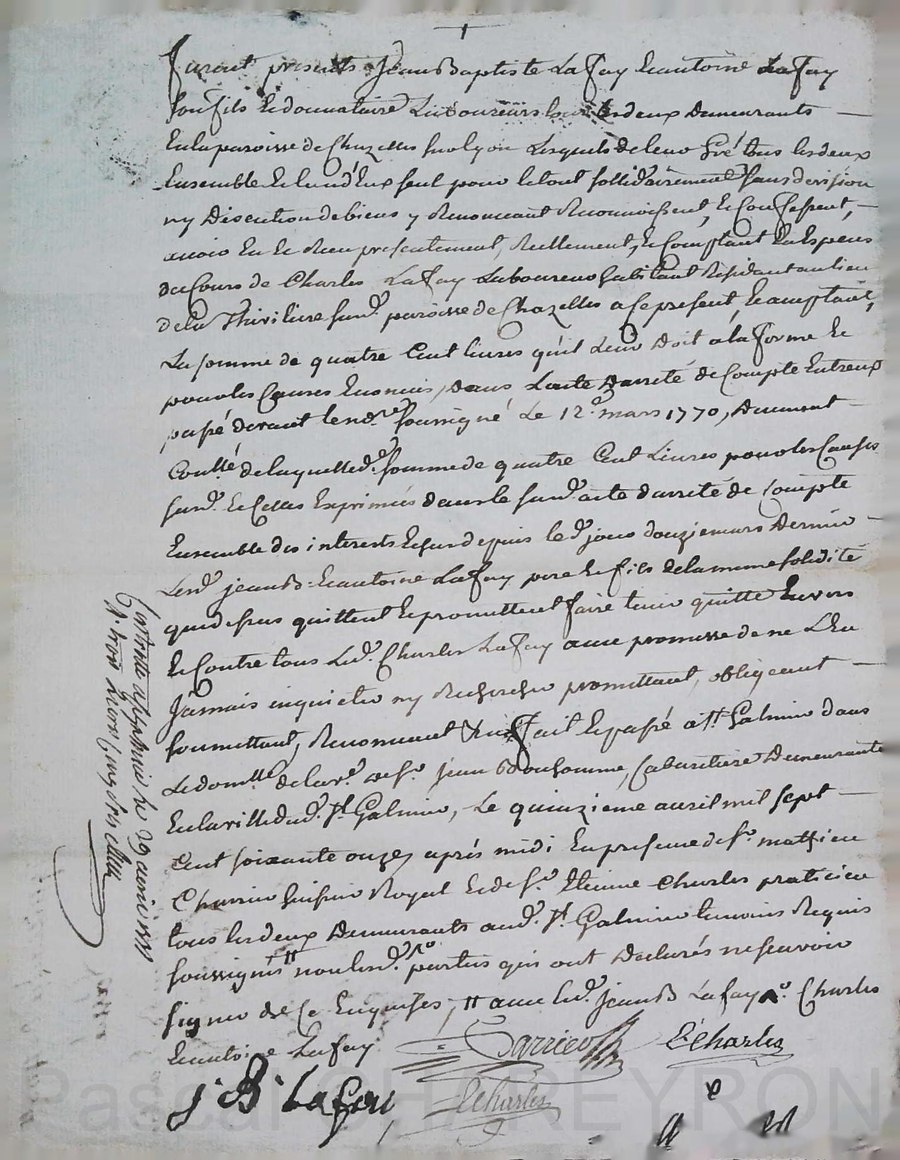 furent presents Jean Baptiste Lafay Et antoine Lafay
son fils Et donnataire Laboureurs tous les deux Demeurants
En la paroisse de Chazelles sur lyon Lesquels de leur Gré tous les deux
Ensemble Et lun d'Eux seul pour le tout sollidairement sans division
ny Discution de biens y Renonceant Reconnoissent, Et Confessent,
avoir Eu Et Reçu presentement, Reellement, Et Comptant En Especes
du Cours de Charles Lafay Laboureur habitant Residant au lieu
de la Thiviliere susd. paroisse de Chazelles a ce present Et acceptant,
La somme de quatre Cent livres qu'il Leur Doit à la forme Et
pour les Causes Enoncées, Dans L'acte D'arrété de Compte Entreux
passé devant le no.re soussigné Le 12.e mars 1770, Duement
Contllé de laquelle d. somme de quatre Cent Livres pour les Causes
susd. Et Celles Exprimées dans le susd. acte d'arrété de Compte
Ensemble des interests Echus depuis le d. jour douze mars Dernier
Lesd. jean B. Et antoine Lafay pere Et fils de la meme solidité
que dessus quittent Et promettent faire tenir quitte Envers
Et Contre tous Led. Charles Lafay avec promesse de ne L'En
Jamais inquieter ny Rechercher promettant, obligeant
soumettant, Renonceant &c fait Et passé a St. Galmier dans
Le domlle de la ve. de sr. jean Bonhomme, Cabaretiere Demeurante
En la ville dud. St. Galmier, Le quinzieme avril mil sept
Cent soixante onze, après midi En presence de sr. mathieu
Charrin huissier Royal Et de sr. Etienne Charles praticien
tous les deux Demeurants aud. St. Galmier temoins Requis
soussignés non lesd. parties qui ont Declarés ne scavoir
signer de Ce Enquises, avec led. jean B Lafay Charles
Et antoine Lafay
Echarles
j B lafay
Echarles
Pascal CHAREYRON